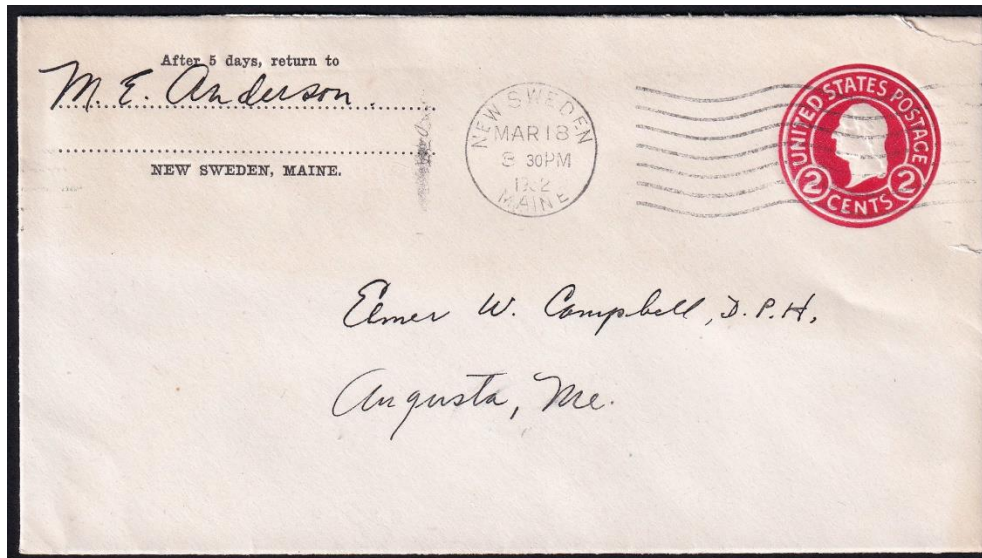 After 5 days, return to
M. E. Anderson.
NEW SWEDEN, MAINE.
NEW SWEDEN
MAR 18
30 PM
MAINE
UNITED STATES POSTAGE
2 CENTS 2
Elmer W. Campbell, D.P.H.
Augusta, Me.